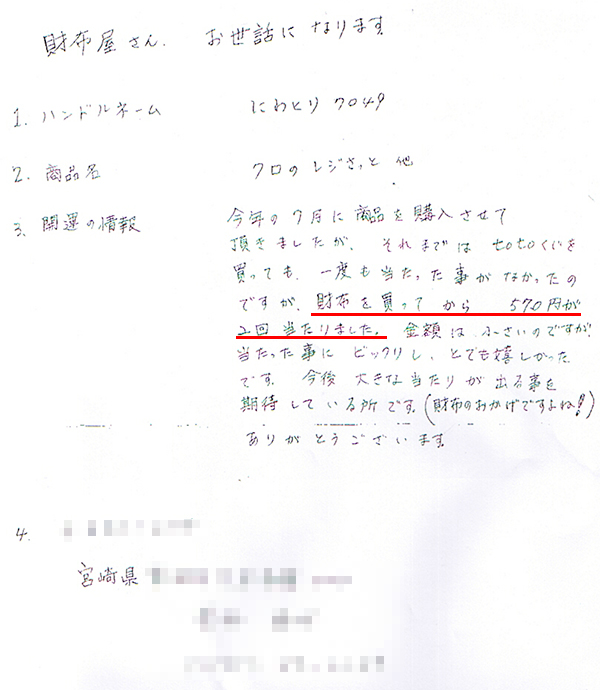 財布屋さん、 お世話になります
1. ハンドルネーム にわとり7049
2. 商品名 クロのレジさっと 他
3. 開運の情報 今年の7月に商品を購入させて
頂きましたが、それまでは totoくじを
買っても、一度も当たった事がなかったの
ですが、財布を買ってから 570円が
2回 当たりました。 金額は小さいのですが
当たった事に ビックリし、とても嬉しかった
です。 今後 大きな当たりが 出る事を
期待している所です。(財布のおかげですよね!)
ありがとうございます。
4.
宮崎県